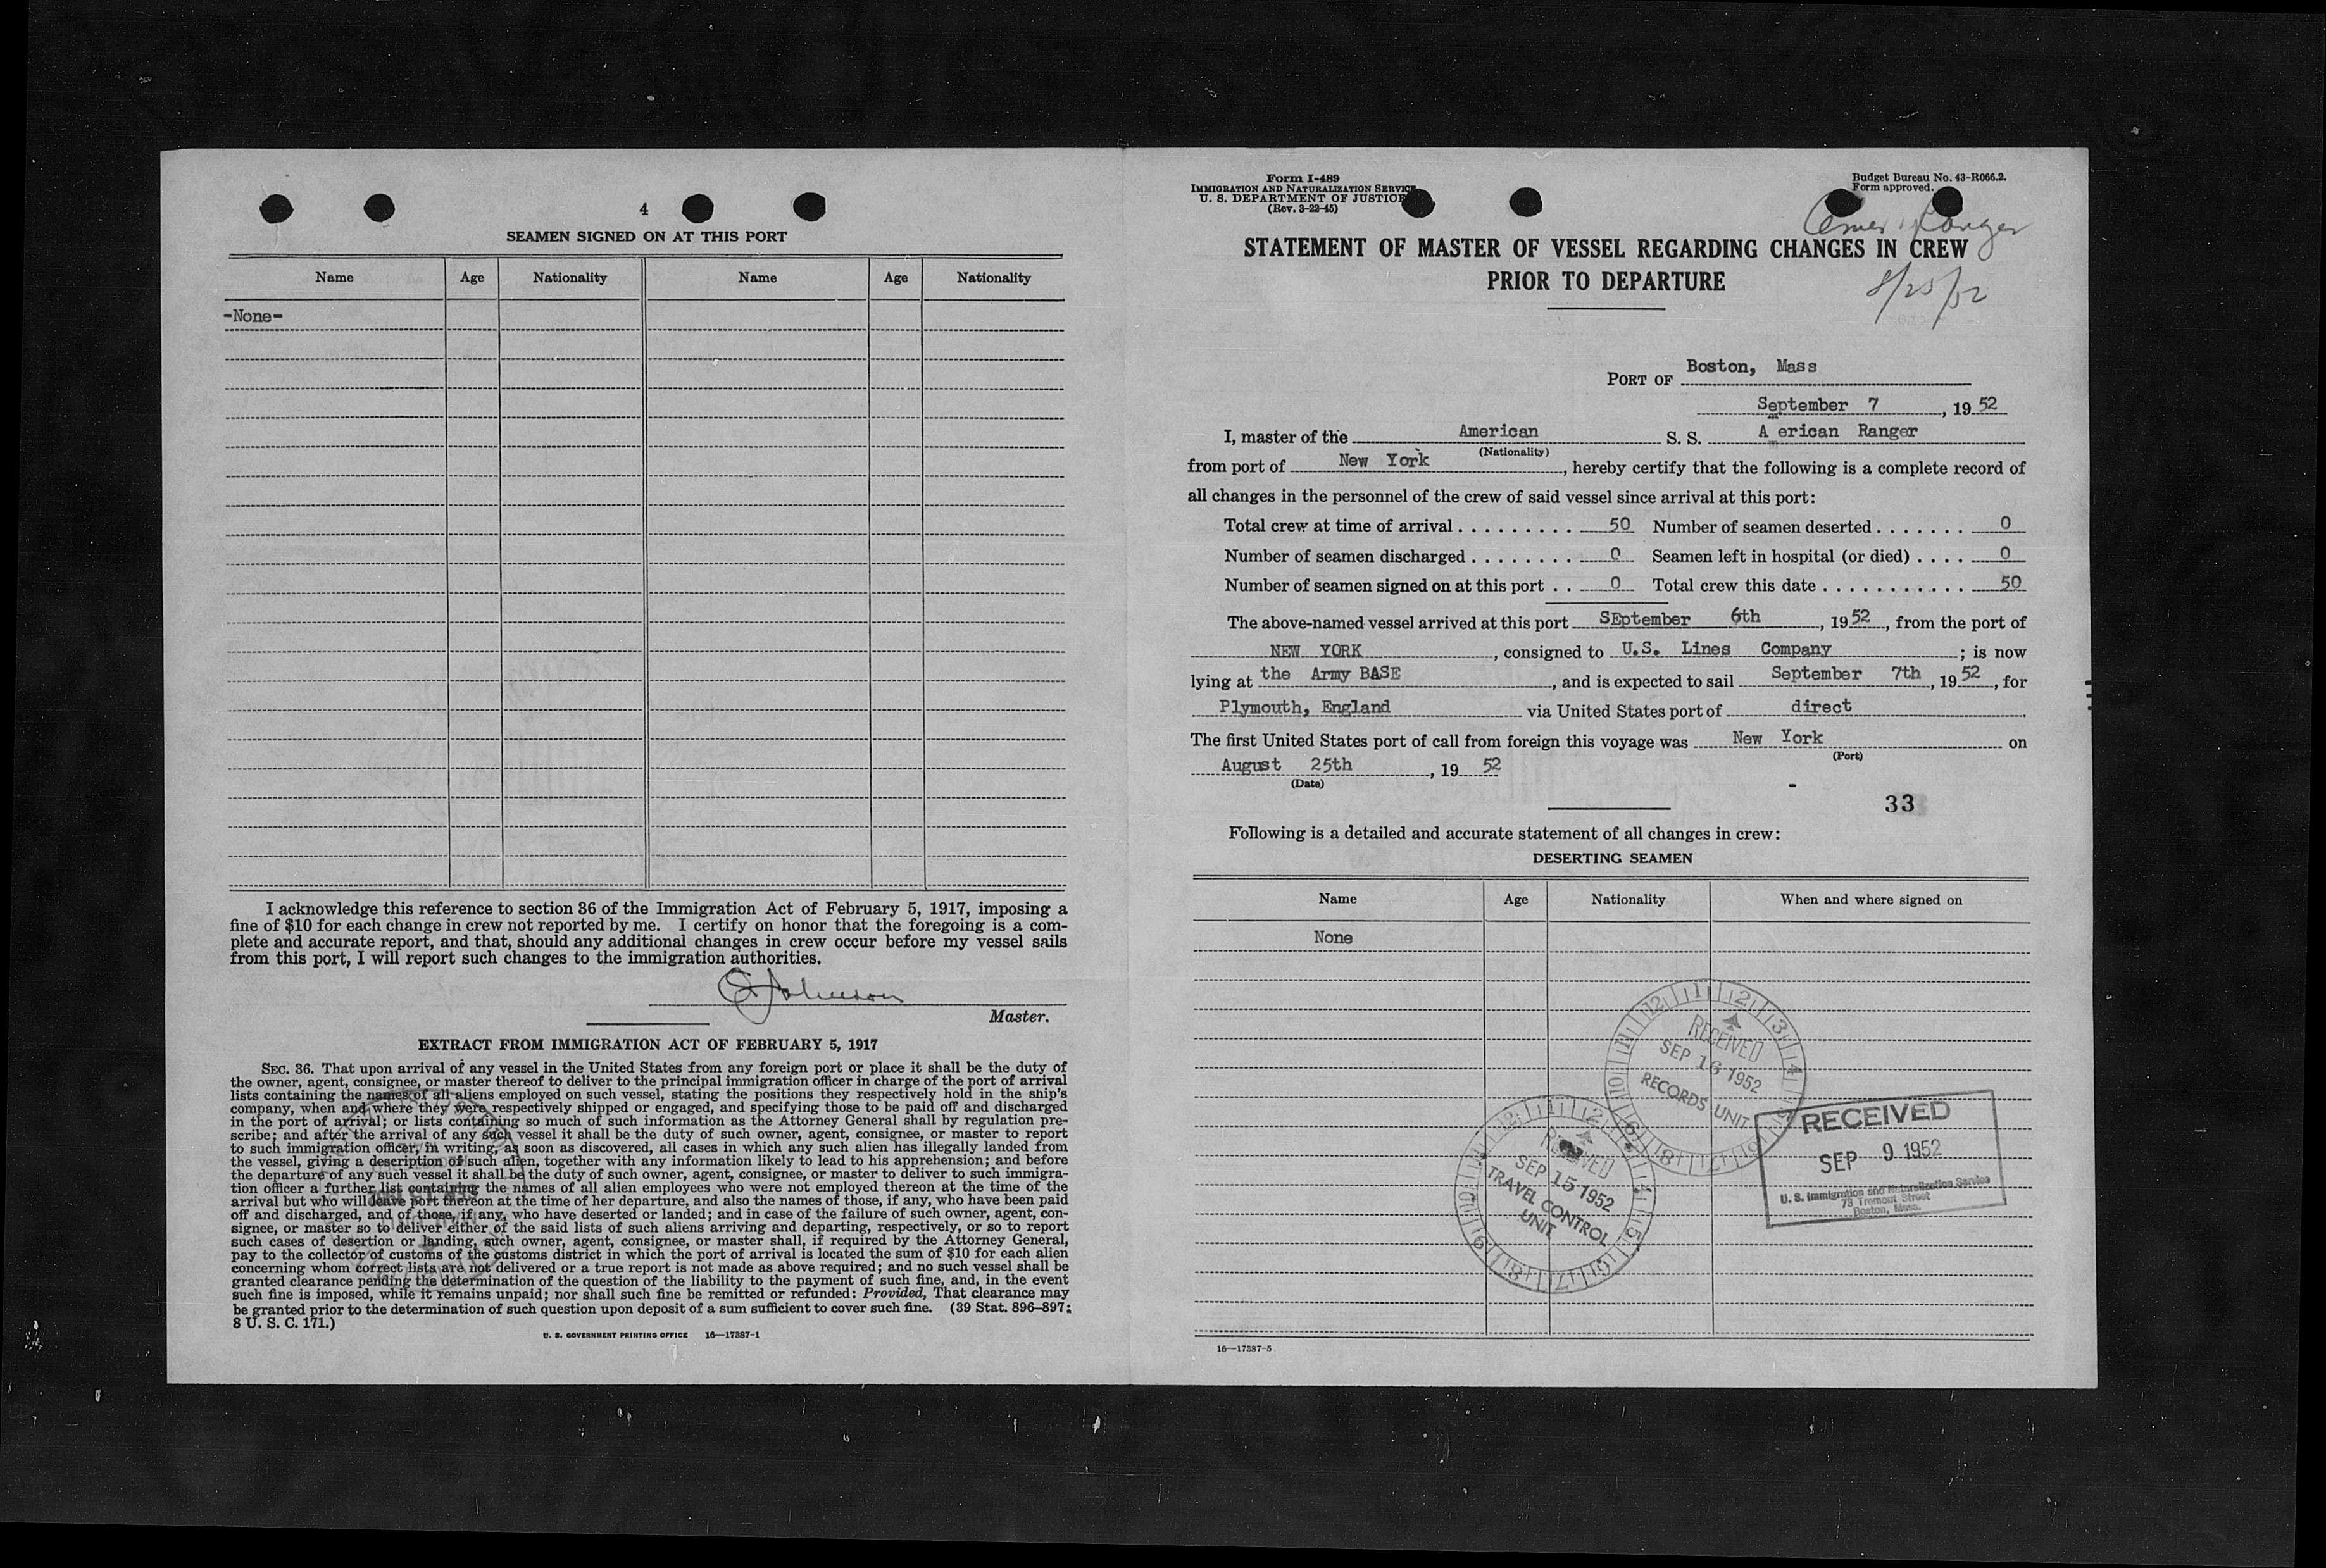 4
SEAMEN SIGNED ON AT THIS PORT
Name Age Nationality Name Age Nationality
-None-
I acknowledge this reference to section 36 of the Immigration Act of February 5, 1917, imposing a
fine of $10 for each change in crew not reported by me. I certify on honor that the foregoing is a com-
plete and accurate report, and that, should any additional changes in crew occur before my vessel sails
from this port, I will report such changes to the immigration authorities.
Master.
EXTRACT FROM IMMIGRATION ACT OF FEBRUARY 5, 1917
SEC. 36. That upon arrival of any vessel in the United States from any foreign port or place it shall be the duty of
the owner, agent, consignee, or master thereof to deliver to the principal immigration officer in charge of the port of arrival
lists containing the names of all aliens employed on such vessel, stating the positions they respectively hold in the ship's
company, when and where they were respectively shipped or engaged, and specifying those to be paid off and discharged
in the port of arrival; or lists containing so much of such information as the Attorney General shall by regulation pre-
scribe; and after the arrival of any such vessel it shall be the duty of such owner, agent, consignee, or master to report
to such immigration officer, in writing, as soon as discovered, all cases in which any such alien has illegally landed from
the vessel, giving a description of such alien, together with any information likely to lead to his apprehension; and before
the departure of any such vessel it shall be the duty of such owner, agent, consignee, or master to deliver to such immigra-
tion officer a further list containing the names of all alien employees who were not employed thereon at the time of the
arrival but who will leave port thereon at the time of her departure, and also the names of those, if any, who have been paid
off and discharged, and of those, if any, who have deserted or landed; and in case of the failure of such owner, agent, con-
signee, or master so to deliver either of the said lists of such aliens arriving and departing, respectively, or so to report
such cases of desertion or landing, such owner, agent, consignee, or master shall, if required by the Attorney General,
pay to the collector of customs of the customs district in which the port of arrival is located the sum of $10 for each alien
concerning whom correct lists are not delivered or a true report is not made as above required; and no such vessel shall be
granted clearance pending the determination of the question of the liability to the payment of such fine, and, in the event
such fine is imposed, while it remains unpaid; nor shall such fine be remitted or refunded: Provided, That clearance may
be granted prior to the determination of such question upon deposit of a sum sufficient to cover such fine. (39 Stat. 896-897;
8 U. S. C. 171.)
U. S. GOVERNMENT PRINTING OFFICE 16—17387-1
Form I-489
IMMIGRATION AND NATURALIZATION SERVICE
U. S. DEPARTMENT OF JUSTICE
(Rev. 3-22-45)
Budget Bureau No. 43-R066.2.
Form approved.
Amer Ranger
8/25/52
STATEMENT OF MASTER OF VESSEL REGARDING CHANGES IN CREW
PRIOR TO DEPARTURE
PORT OF Boston, Mass
September 7, 1952
I, master of the American S. S. A erican Ranger
(Nationality)
from port of New York, hereby certify that the following is a complete record of
all changes in the personnel of the crew of said vessel since arrival at this port:
Total crew at time of arrival . . . . . . . . . . 50 Number of seamen deserted . . . . . . . 0
Number of seamen discharged . . . . . . . . . 0 Seamen left in hospital (or died) . . . . 0
Number of seamen signed on at this port . . 0 Total crew this date . . . . . . . . . . . 50
The above-named vessel arrived at this port SEptember 6th, 1952, from the port of
NEW YORK, consigned to U.S. Lines Company; is now
lying at the Army BASE, and is expected to sail September 7th, 1952, for
Plymouth, England via United States port of direct
The first United States port of call from foreign this voyage was New York on
(Port)
August 25th, 1952
(Date)
33
Following is a detailed and accurate statement of all changes in crew:
DESERTING SEAMEN
Name Age Nationality When and where signed on
None
RECEIVED
SEP 16 1952
RECORDS UNIT
RECEIVED
SEP 15 1952
TRAVEL CONTROL
UNIT
RECEIVED
SEP 9 1952
U. S. Immigration and Naturalization Service
73 Tremont Street
Boston, Mass.
16—17387-5